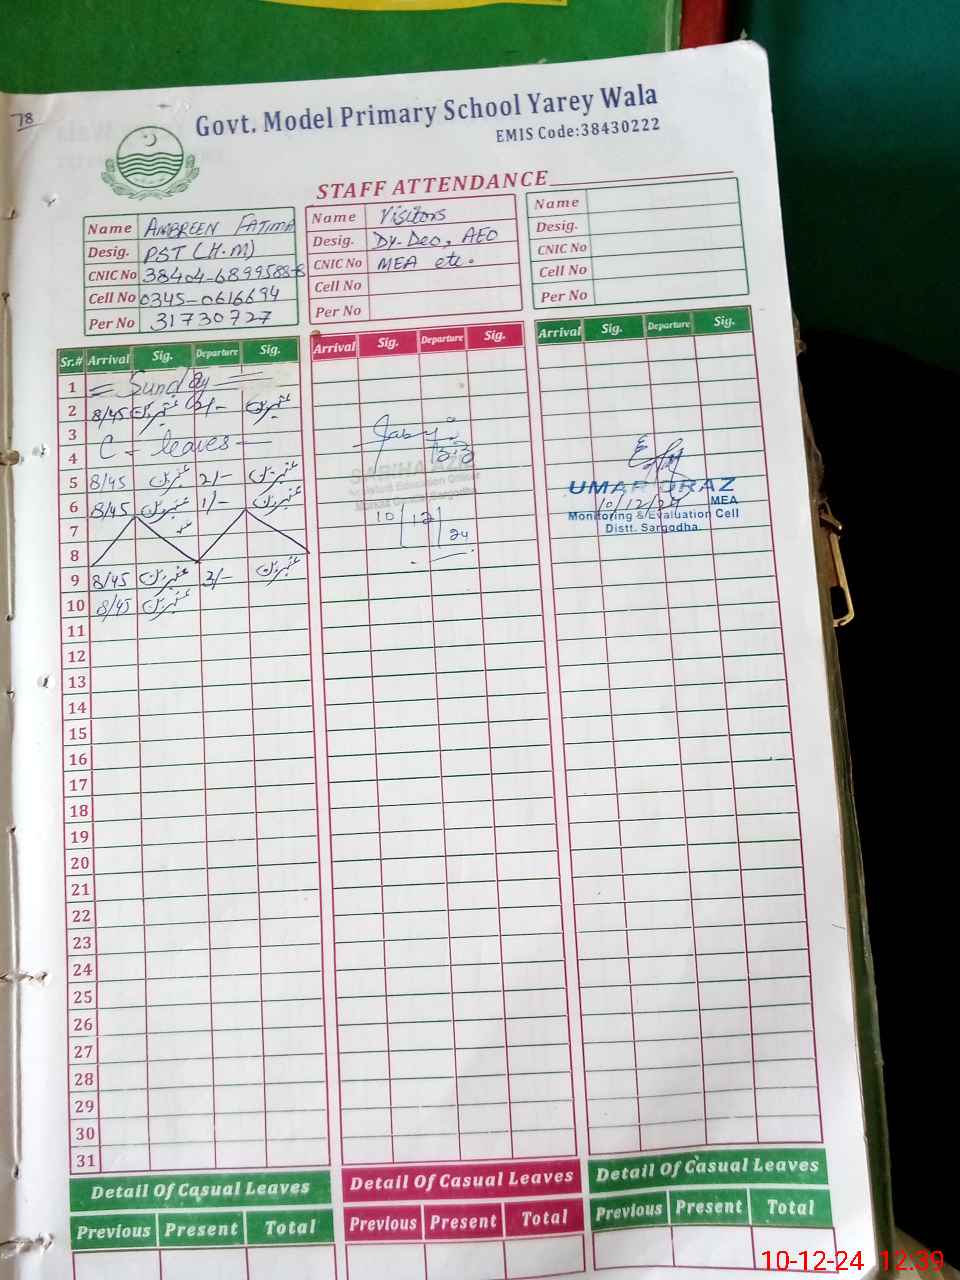 78
Govt. Model Primary School Yarey Wala
EMIS Code:38430222
STAFF ATTENDANCE
Name AMBREEN FATIMA
Desig. PST (H.M)
CNIC No 38404-6899588-8
Cell No 0345-0616694
Per No 31730727
Name Visitors
Desig. Dy. Deo, AEO
CNIC No MEA etc.
Cell No
Per No
Name
Desig.
CNIC No
Cell No
Per No
Sr.# Arrival Sig. Departure Sig.
Arrival Sig. Departure Sig.
Arrival Sig. Departure Sig.
1 = Sunday =
2 8/45 عنبرین 2/- عنبرین
3
C - leaves -
4
5 8/45 عنبرین 2/- عنبرین
6 8/45 عنبرین 1/- عنبرین
7
8
9 8/45 عنبرین 2/- عنبرین
10 8/45 عنبرین
11
12
13
14
15
16
17
18
19
20
21
22
23
24
25
26
27
28
29
30
31
Assistant Education Officer
Sargodha
10/12/24
UMAR DRAZ
MEA
10/12/24
Monitoring & Evaluation Cell
Distt. Sargodha.
Detail Of Casual Leaves
Previous Present Total
Detail Of Casual Leaves
Previous Present Total
Detail Of Casual Leaves
Previous Present Total
10-12-24 12:39